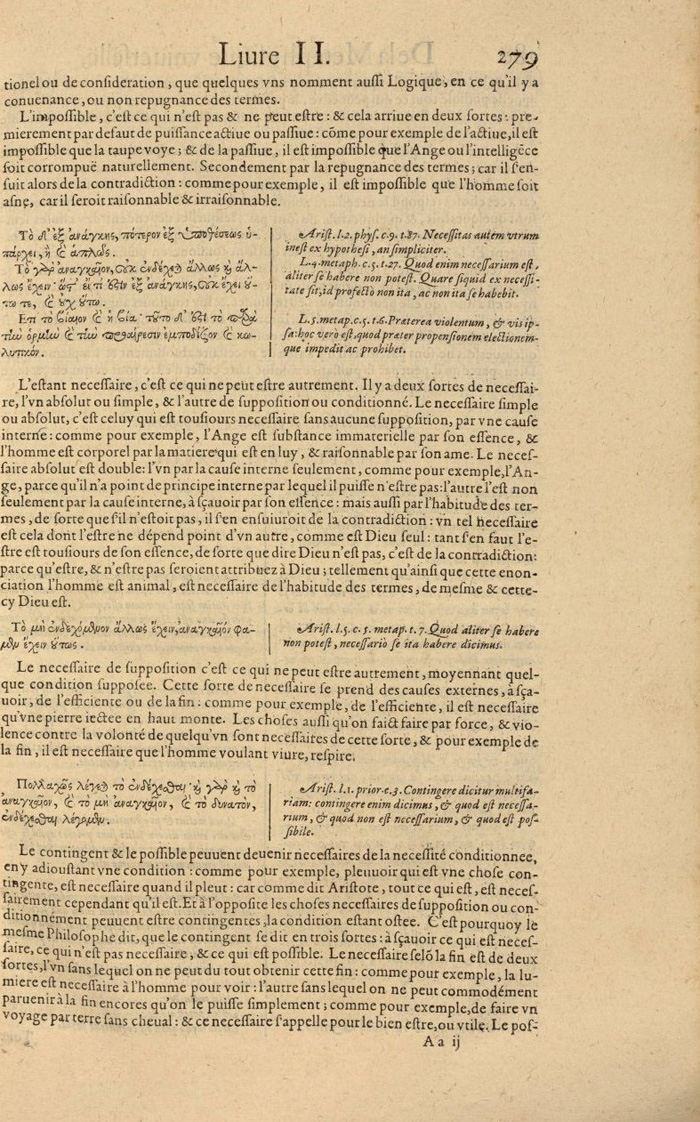 Liure II. 279
tionel ou de consideration, que quelques vns nomment aussi Logique, en ce qu'il y a
conuenance, ou non repugnance des termes.
L'impossible, c'est ce qui n'est pas & ne peut estre : & cela arriue en deux sortes : pre-
mierement par defaut de puissance actiue ou passiue : cõme pour exemple de l'actiue, il est
impossible que la taupe voye ; & de la passiue, il est impossible que l'Ange ou l'intelligẽce
soit corrompuë naturellement. Secondement par la repugnance des termes ; car il s'en-
suit alors de la contradiction : comme pour exemple, il est impossible que l'homme soit
asne, car il seroit raisonnable & irraisonnable.
Τὸ δ' ἐξ ἀνάγκης, πότερον ἐξ ὑποθέσεως ὑ-
πάρχει, ἢ καὶ ἁπλῶς.
Τὸ γὰρ ἀναγκαῖον, οὐκ ἐνδέχεται ἄλλως καὶ ἄλ-
λως ἔχειν· ὥστ' εἴ τι ἐστὶν ἐξ ἀνάγκης, οὐκ ἔχει οὕ-
τω τε, καὶ οὐχ οὕτω.
Ετι τὸ βίαιον καὶ ἡ βία· τοῦτο δ' ἐστὶ τὸ παρὰ
τὴν ὁρμὴν καὶ τὴν προαίρεσιν ἐμποδίζον καὶ κω-
λυτικόν.
Arist. l.2. phys. c.9. t.87. Necessitas autem vtrum
inest ex hypothesi, an simpliciter.
L.4. metaph. c.5. t.27. Quod enim necessarium est,
aliter se habere non potest. Quare siquid ex necessi-
tate sit, id profectò non ita, ac non ita se habebit.
L.5. metap. c.5. t.6. Præterea violentum, & vis ip-
sa : hoc verò est, quod præter propensionem electionem-
que impedit ac prohibet.
L'estant necessaire, c'est ce qui ne peut estre autrement. Il y a deux sortes de necessai-
re, l'vn absolut ou simple, & l'autre de supposition ou conditionné. Le necessaire simple
ou absolut, c'est celuy qui est tousiours necessaire sans aucune supposition, par vne cause
interne : comme pour exemple, l'Ange est substance immaterielle par son essence, &
l'homme est corporel par la matiere qui est en luy, & raisonnable par son ame. Le neces-
saire absolut est double : l'vn par la cause interne seulement, comme pour exemple, l'An-
ge, parce qu'il n'a point de principe interne par lequel il puisse n'estre pas : l'autre l'est non
seulement par la cause interne, à sçauoir par son essence : mais aussi par l'habitude des ter-
mes, de sorte que s'il n'estoit pas, il s'en ensuiuroit de la contradiction : vn tel necessaire
est cela dont l'estre ne dépend point d'vn autre, comme est Dieu seul : tant s'en faut l'e-
stre est tousiours de son essence, de sorte que dire Dieu n'est pas, c'est de la contradiction:
parce qu'estre, & n'estre pas seroient attribuez à Dieu ; tellement qu'ainsi que cette enon-
ciation l'homme est animal, est necessaire de l'habitude des termes, de mesme & cette-
cy Dieu est.
Τὸ μὴ ἐνδεχόμενον ἄλλως ἔχειν, ἀναγκαῖόν φα-
μεν ἔχειν οὕτως.
Arist. l.5. c.5. metap. t.7. Quod aliter se habere
non potest, necessariò se ita habere dicimus.
Le necessaire de supposition c'est ce qui ne peut estre autrement, moyennant quel-
que condition supposee. Cette sorte de necessaire se prend des causes externes, à sça-
uoir, de l'efficiente ou de la fin : comme pour exemple, de l'efficiente, il est necessaire
qu'vne pierre iectee en haut monte. Les choses aussi qu'on faict faire par force, & vio-
lence contre la volonté de quelqu'vn sont necessaires de cette sorte, & pour exemple de
la fin, il est necessaire que l'homme voulant viure, respire.
Πολλαχῶς λέγεται τὸ ἐνδέχεσθαι· καὶ γὰρ καὶ τὸ
ἀναγκαῖον, καὶ τὸ μὴ ἀναγκαῖον, καὶ τὸ δυνατὸν,
ἐνδέχεσθαι λέγομεν.
Arist. l.1. prior. c.3. Contingere dicitur multifa-
riam : contingere enim dicimus, & quod est necessa-
rium, & quod non est necessarium, & quod est pos-
sibile.
Le contingent & le possible peuuent deuenir necessaires de la necessité conditionnee,
en y adioustant vne condition : comme pour exemple, pleuuoir qui est vne chose con-
tingente, est necessaire quand il pleut : car comme dit Aristote, tout ce qui est, est neces-
sairement cependant qu'il est. Et à l'opposite les choses necessaires de supposition ou con-
ditionnément peuuent estre contingentes, la condition estant ostee. C'est pourquoy le
mesme Philosophe dit, que le contingent se dit en trois sortes : à sçauoir ce qui est neces-
saire, ce qui n'est pas necessaire, & ce qui est possible. Le necessaire selõ la fin est de deux
sortes, l'vn sans lequel on ne peut du tout obtenir cette fin : comme pour exemple, la lu-
miere est necessaire à l'homme pour voir : l'autre sans lequel on ne peut commodément
paruenir à la fin encores qu'on le puisse simplement ; comme pour exemple, de faire vn
voyage par terre sans cheual : & ce necessaire s'appelle pour le bien estre, ou vtile. Le pos-
A a ij